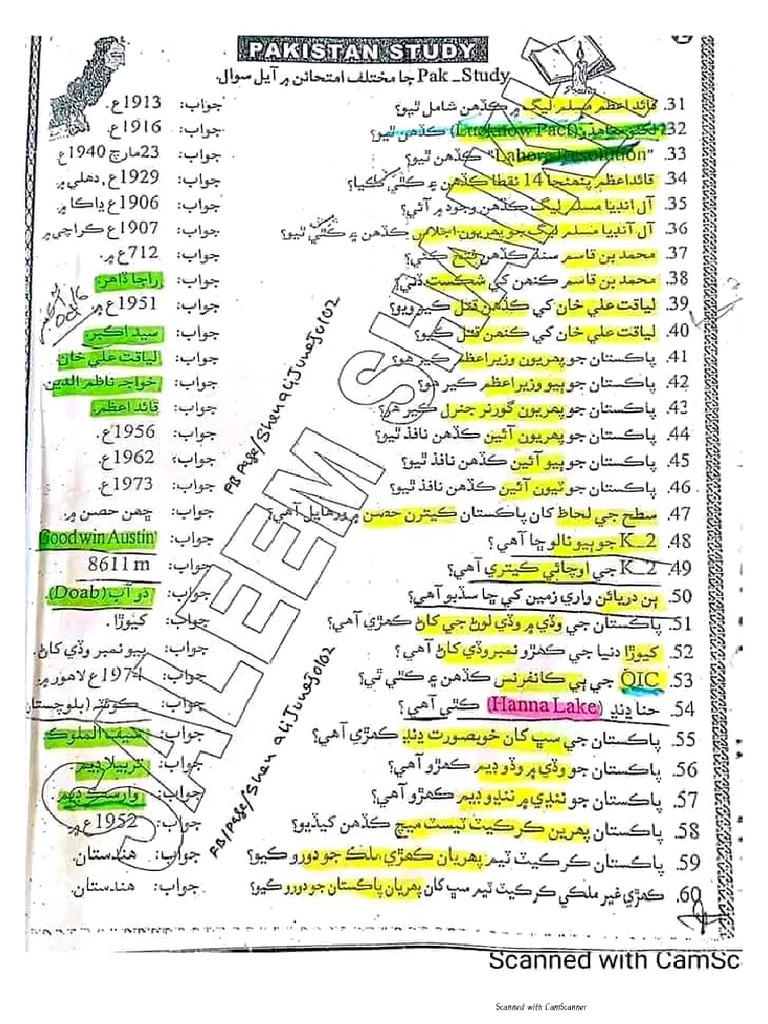 PAKISTAN STUDY
Pak_Study جا مختلف امتحانن ۾ آيل سوال.
31. قائداعظم مسلم ليگ ۾ ڪڏهن شامل ٿيو؟ جواب: 1913ع.
32. لکنئو معاهدو (Lucknow Pact) ڪڏهن ٿيو؟ جواب: 1916ع.
33. "Lahore Resolution" ڪڏهن ٿيو؟ جواب: 23مارچ 1940ع
34. قائداعظم پنهنجا 14 نقطا ڪڏهن ۽ ڪٿي ڪيا؟ جواب: 1929ع, دهلي ۾.
35. آل انڊيا مسلم ليگ ڪڏهن وجود ۾ آئي؟ جواب: 1906ع ڍاڪا ۾.
36. آل انڊيا مسلم ليگ جو پهريون اجلاس ڪڏهن ۽ ڪٿي ٿيو؟ جواب: 1907ع ڪراچي ۾
37. محمد بن قاسم سنڌ ڪڏهن فتح ڪئي؟ جواب: 712ع ۾.
38. محمد بن قاسم ڪنهن کي شڪست ڏني؟ جواب: راجا ڏاهر.
39. لياقت علي خان کي ڪڏهن قتل ڪيو ويو؟ جواب: 1951ع ۾.
16 Oct
40. لياقت علي خان کي ڪنهن قتل ڪيو؟ جواب: سيد اڪبر.
41. پاڪستان جو پهريون وزيراعظم ڪير هو؟ جواب: لياقت علي خان
42. پاڪستان جو ٻيو وزيراعظم ڪير هو؟ جواب: خواجه ناظم الدين.
43. پاڪستان جو پهريون گورنر جنرل ڪير هو؟ جواب: قائداعظم.
44. پاڪستان جو پهريون آئين ڪڏهن نافذ ٿيو؟ جواب: 1956ع.
45. پاڪستان جو ٻيو آئين ڪڏهن نافذ ٿيو؟ جواب: 1962ع.
46. پاڪستان جو ٽيون آئين ڪڏهن نافذ ٿيو؟ جواب: 1973ع.
47. سطح جي لحاظ کان پاڪستان ڪيترن حصن ۾ ورهايل آهي؟ جواب: ڇهن حصن ۾.
48. K_2 جو ٻيو نالو ڇا آهي؟ جواب: Goodwin Austin
49. K_2 جي اوچائي ڪيتري آهي؟ جواب: 8611 m
50. ٻن دريائن واري زمين کي ڇا سڏبو آهي؟ جواب: دو آب (Doab).
51. پاڪستان جي وڏي ۾ وڏي لوڻ جي کاڻ ڪهڙي آهي؟ جواب: کيوڙا.
52. کيوڙا دنيا جي ڪهڙو نمبر وڏي کاڻ آهي؟ جواب: ٻيو نمبر وڏي کاڻ.
53. OIC جي ٻي ڪانفرنس ڪڏهن ۽ ڪٿي ٿي؟ جواب: 1974ع لاهور ۾.
54. حنا ڍنڍ (Hanna Lake) ڪٿي آهي؟ جواب: ڪوئٽه (بلوچستان
55. پاڪستان جي سڀ کان خوبصورت ڍنڍ ڪهڙي آهي؟ جواب: سيف الملوڪ.
56. پاڪستان جو وڏي ۾ وڏو ڊيم ڪهڙو آهي؟ جواب: تربيلا ڊيم.
57. پاڪستان جو ننڍي ۾ ننڍو ڊيم ڪهڙو آهي؟ جواب: وارسڪ ڊيم.
58. پاڪستان پهرين ڪرڪيٽ ٽيسٽ ميچ ڪڏهن کيڏيو؟ جواب: 1952ع ۾.
59. پاڪستان ڪرڪيٽ ٽيم پهريان ڪهڙي ملڪ جو دورو ڪيو؟ جواب: هندستان.
60. ڪهڙي غير ملڪي ڪرڪيٽ ٽيم سڀ کان پهريان پاڪستان جو دورو ڪيو؟ جواب: هندستان.
SALEEM SHAIKH
FB Page/Shen ali Junejo/02
FB/Page/Shen ali Junejo/02
Scanned with CamSc
Scanned with CamScanner